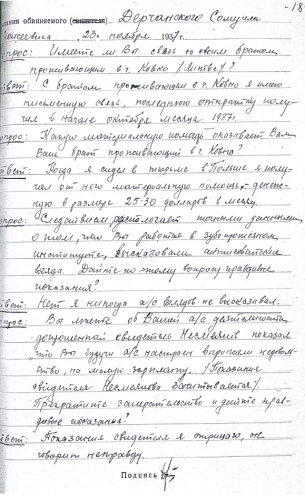 -18
зания обвиняемого (свидетеля) Дерчанского Самуила
Моисеевича 23 ноября 1937г.
прос: Имеете ли Вы связь со своим братом,
проживающим в г. Ковно /Литва/?
вет: С братом проживающим в г. Ковно я имею
письменную связь, последнюю открытку полу-
чил в начале октября месяца 1937г.
прос: Какую материальную помощь оказывает Вам
Ваш брат проживающий в г. Ковно?
вет: Когда я сидел в тюрьме в Польше я полу-
чал от него материальную помощь, денеж-
ную в размере 25-30 долларов в месяц.
прос: Следствием располагает точными данными,
о том, что Вы работая в зубопротезном
институте, высказывали антисоветские
взгляды. Дайте по этому вопросу правдивые
показания?
вет: Нет я никогда а/с взгляды не высказывал.
прос: Вы лжете об Вашей а/с деятельности,
допрошенный свидетель показал
что Вы будучи а/с настроен выражали недоволь-
ство, на малую зарплату. /Показание
свидетеля зачитывается/
Прекратите запирательство и дайте прав-
дивое показание?
вет: Показания свидетеля я отрицаю, он
говорит неправду.
Подпись